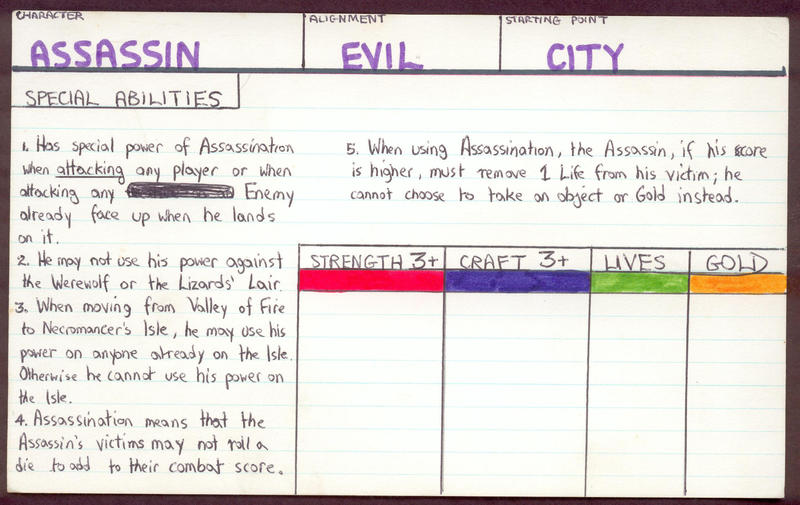 CHARACTER
ASSASSIN
ALIGNMENT
EVIL
STARTING POINT
CITY
SPECIAL ABILITIES
1. Has special power of Assassination
when attacking any player or when
attacking any Enemy
already face up when he lands
on it.
2. He may not use his power against
the Werewolf or the Lizards' Lair.
3. When moving from Valley of Fire
to Necromancer's Isle, he may use his
power on anyone already on the Isle.
Otherwise he cannot use his power on
the Isle.
4. Assassination means that the
Assassin's victims may not roll a
die to add to their combat score.
5. When using Assassination, the Assassin, if his score
is higher, must remove 1 Life from his victim; he
cannot choose to take an object or Gold instead.
STRENGTH 3+
CRAFT 3+
LIVES
GOLD